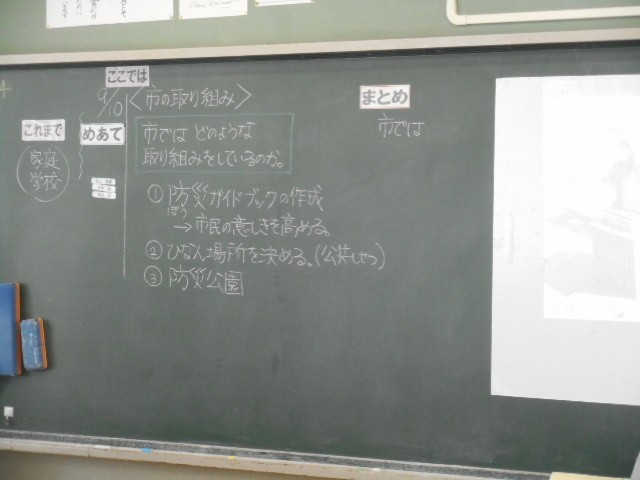 ここでは
9/10
<市の取り組み>
これまで
家庭
学校
めあて
市では どのような
取り組みをしているのか。
① 防災ガイドブックの作成
ぼう
→市民の意しきを高める。
② ひなん場所を決める。(公共しせつ)
③ 防災公園
まとめ
市では